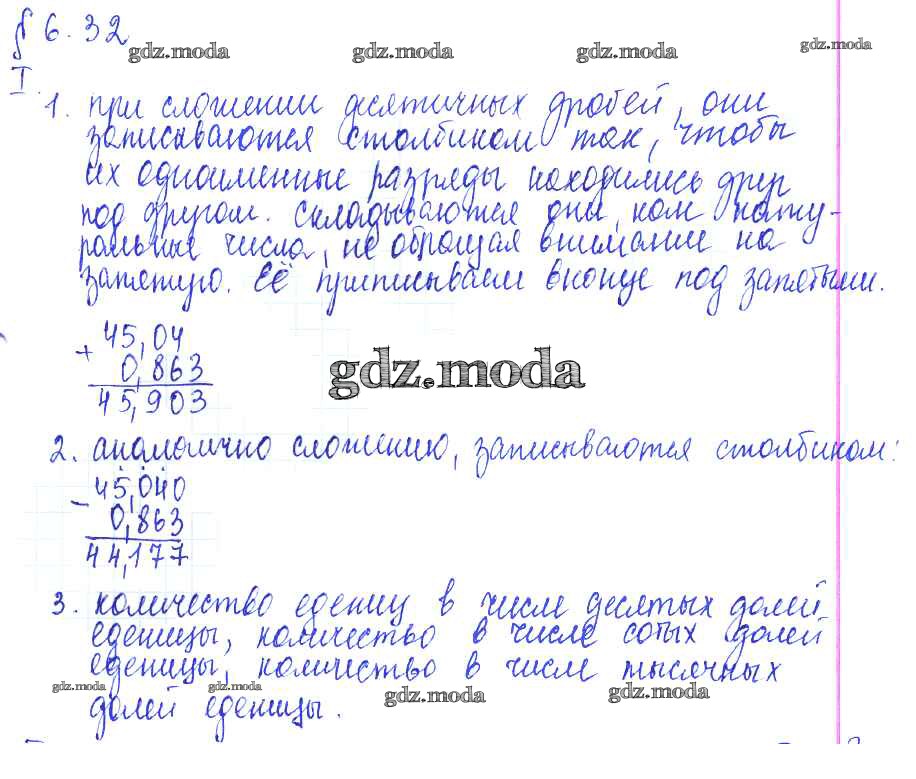 § 6.32
gdz.moda
gdz.moda
gdz.moda
I.
1. при сложении десятичных дробей, они
записываются столбиком так, чтобы
их одноименные разряды находились друг
под другом. Складываются они, как нату-
ральные числа, не обращая внимание на
запятую. Её приписываем вконце под запятыми.
+ 45,04
0,863
45,903
gdz.moda
2. аналогично сложению, записываются столбиком:
- 45,040
0,863
44,177
3. количество едениц в числе десятых долей
еденицы, количество в числе сотых долей
еденицы, количество в числе тысячных
gdz.moda
gdz.moda
gdz.moda
gdz.moda
долей еденицы.